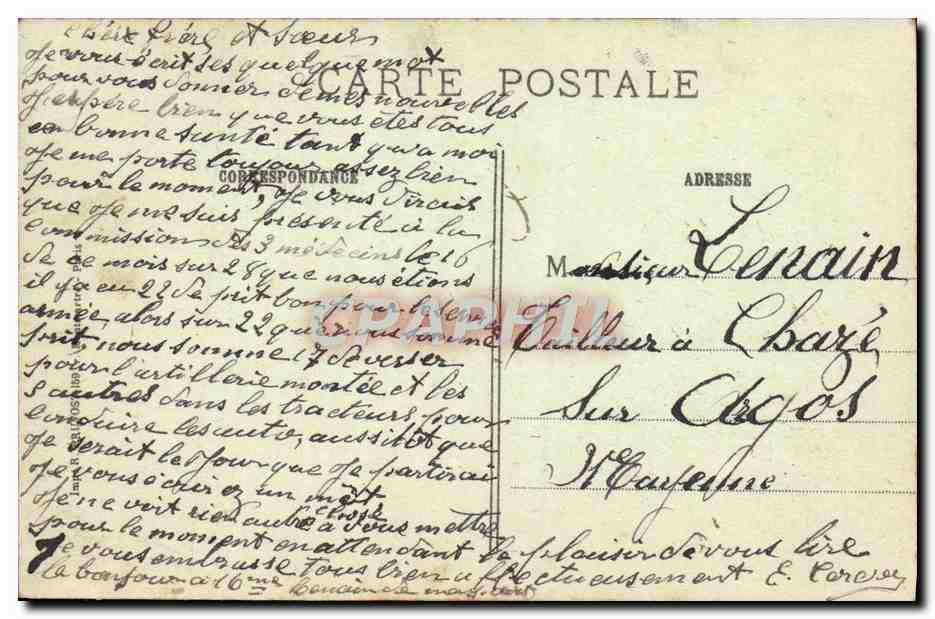 Cher frère et sœur
Je vous écrit ses quelque mot
pour vous donner de mes nouvelles
J'espère bien que vous êtes tous
en bonne santé tant qu'a moi
Je me porte toujour assez bien
pour le moment, Je vous dirais
que Je me suis présenté à la
commission des 3 médecins le 16
de ce mois sur 28 que nous étions
il y a en 22 de prit bon pour le service
armée, alors sur 22 que nous somme
prit nous somme 17 de verser
pour l'artillerie montée et les
5 autres dans les tracteurs pour
conduire les auto, aussitôt que
Je serait le Jour que Je partirai
Je vous écrirez un mot
Je ne voit rien autre chose à vous mettre
pour le moment en attendant le plaisir de vous lire
Je vous embrasse tous bien affectueusement E.
le bonjour à
CARTE POSTALE
CORRESPONDANCE
ADRESSE
Monsieur Lenain
Tailleur à Chazé
Sur Argos
Mayenne
CPAPHIL